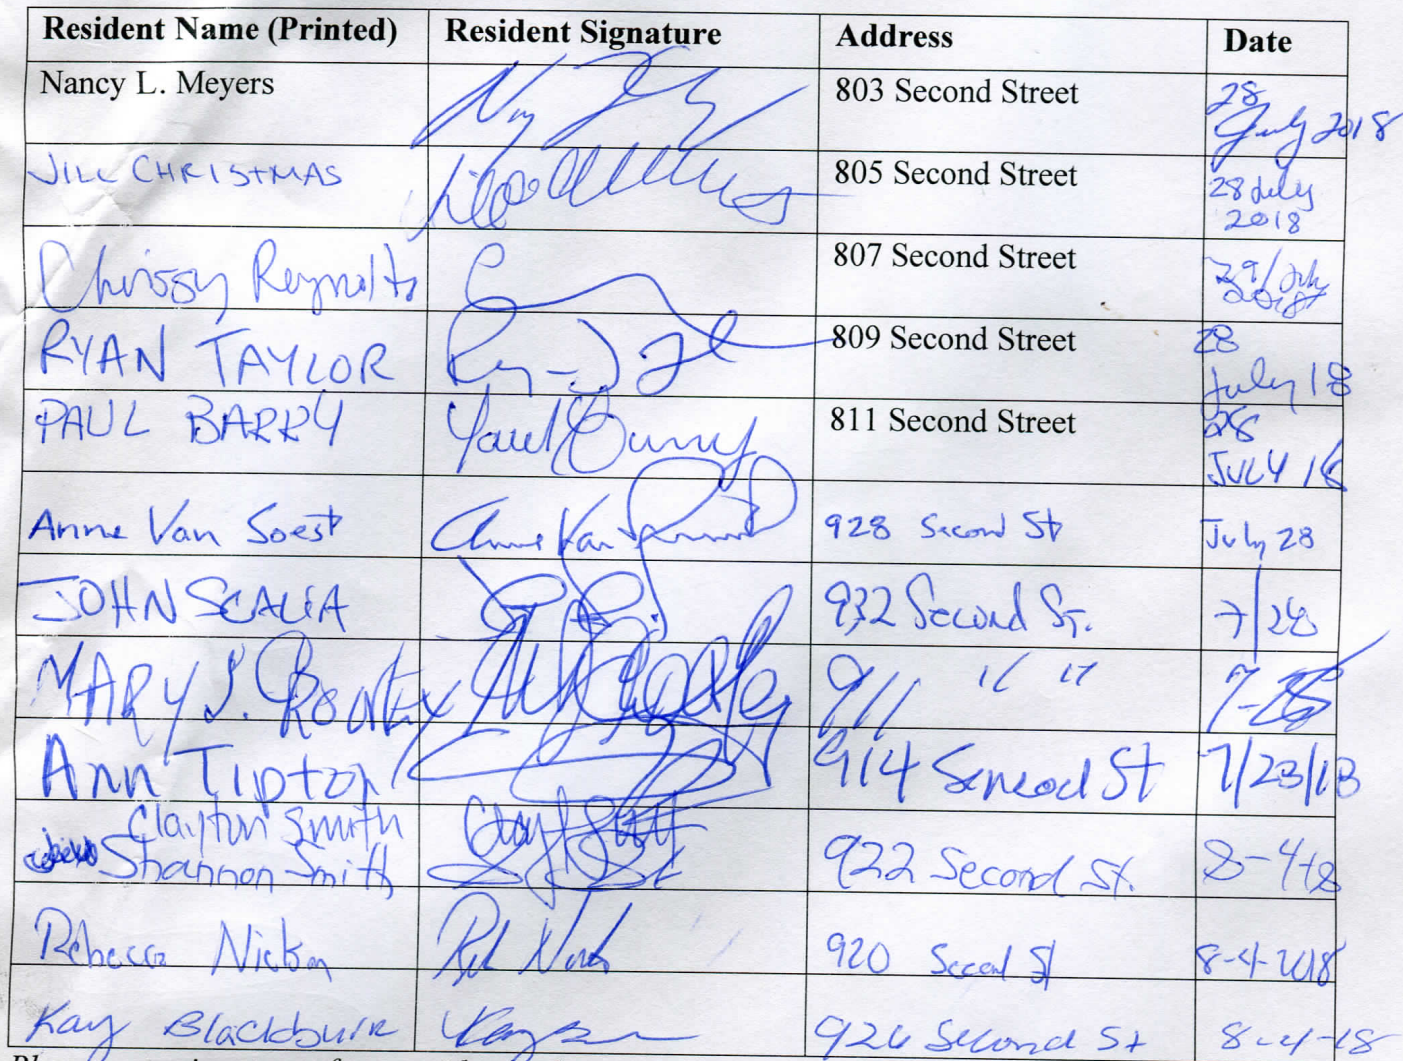 Resident Name (Printed) Resident Signature Address Date
Nancy L. Meyers 803 Second Street 28 July 2018
JILL CHRISTMAS 805 Second Street 28 July 2018
Chrissy Reynolds 807 Second Street 29/July 2018
RYAN TAYLOR 809 Second Street 28 July 18
PAUL BARRY Paul Barry 811 Second Street 28 JULY 18
Anne Van Soest Anne Van Soest 928 Second St July 28
JOHN SCALIA 932 Second St. 7/28
MARY J. 911 " " 7-28
Ann Tipton 914 Second St 7/23/18
Clayton Smith
Shannon Smith 922 Second St. 8-4-18
Rebecca 920 Second St 8-4-2018
Kay 926 Second St 8-4-18